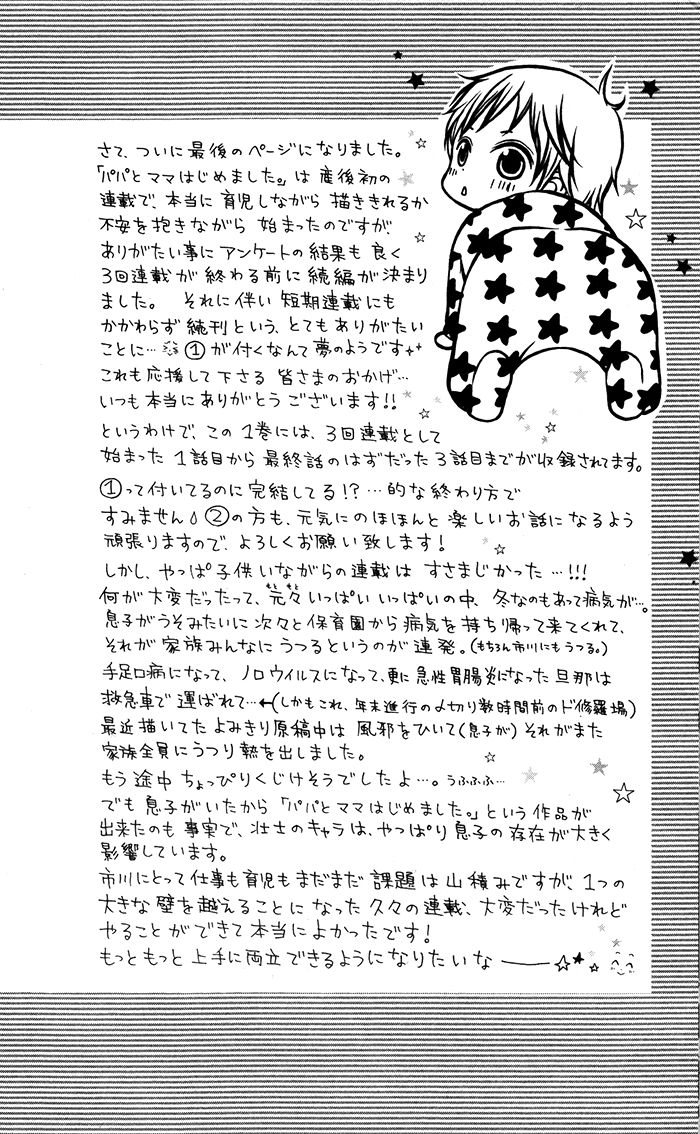 さて、ついに最後のページになりました。
「パパとママはじめました。」は産後初の
連載で、本当に育児しながら描ききれるか
不安を抱きながら始まったのですが
ありがたい事にアンケートの結果も良く
3回連載が終わる前に続編が決まり
ました。 それに伴い短期連載にも
かかわらず続刊という、とてもありがたい
ことに… ①が付くなんて夢のようです
これも応援して下さる皆さまのおかげ…
いつも本当にありがとうございます!!
というわけで、この1巻には、3回連載として
始まった1話目から最終話のはずだった3話目までが収録されてます。
①って付いてるのに完結してる!?…的な終わり方で
すみません ②の方も、元気にのほほんと楽しいお話になるよう
頑張りますので、よろしくお願い致します!
しかし、やっぱ子供いながらの連載はすさまじかった…!!!
何が大変だったって、元々いっぱいいっぱいの中、冬なのもあって病気が…。
息子がうそみたいに次々と保育園から病気を持ち帰って来てくれて、
それが家族みんなにうつるというのが連発。(もちろん市川にもうつる。)
手足口病になって、ノロウイルスになって、更に急性胃腸炎になった旦那は
救急車で運ばれて…←(しかもこれ、年末進行の〆切り数時間前のド修羅場)
最近描いてたよみきり原稿中は風邪をひいて(息子が)それがまた
家族全員にうつり熱を出しました。
もう途中ちょっぴりくじけそうでしたよ…。うふふふ…
でも息子がいたから「パパとママはじめました。」という作品が
出来たのも事実で、壮士のキャラは、やっぱり息子の存在が大きく
影響しています。
市川にとって仕事も育児もまだまだ課題は山積みですが、1つの
大きな壁を越えることになった久々の連載、大変だったけれど
やることができて本当によかったです!
もっともっと上手に両立できるようになりたいな――☆★